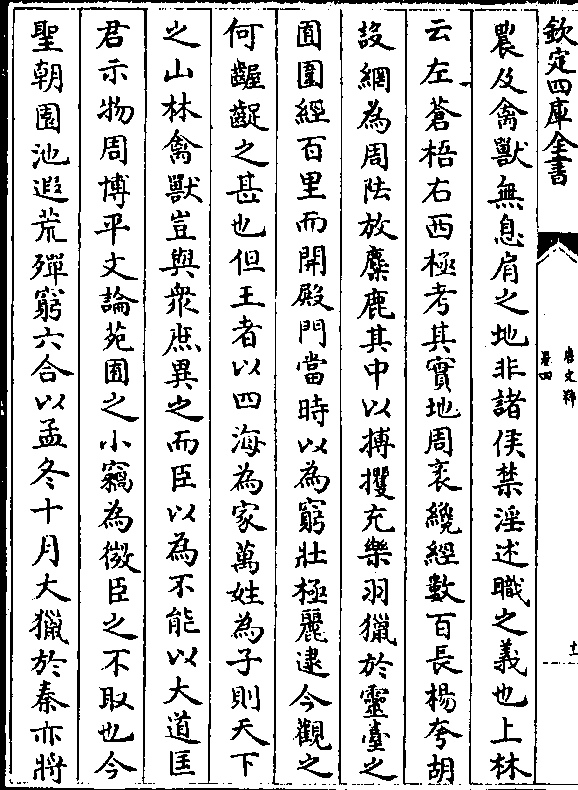 欽定四庫全書
唐文粹
卷四
十一
農及禽獸無息肩之地非諸侯禁淫述職之義也上林
云左蒼梧右西極考其實地周袤纔經數百長楊夸胡
設網為周阹放麋鹿其中以搏攫充樂羽獵於靈臺之
囿圍經百里而開殿門當時以為窮壯極麗逮今觀之
何齷齪之甚也但王者以四海為家萬姓為子則天下
之山林禽獸豈與衆庶異之而臣以為不能以大道匡
君示物周博平文論苑囿之小竊為微臣之不取也今
聖朝園池遐荒殫窮六合以孟冬十月大獵於秦亦將